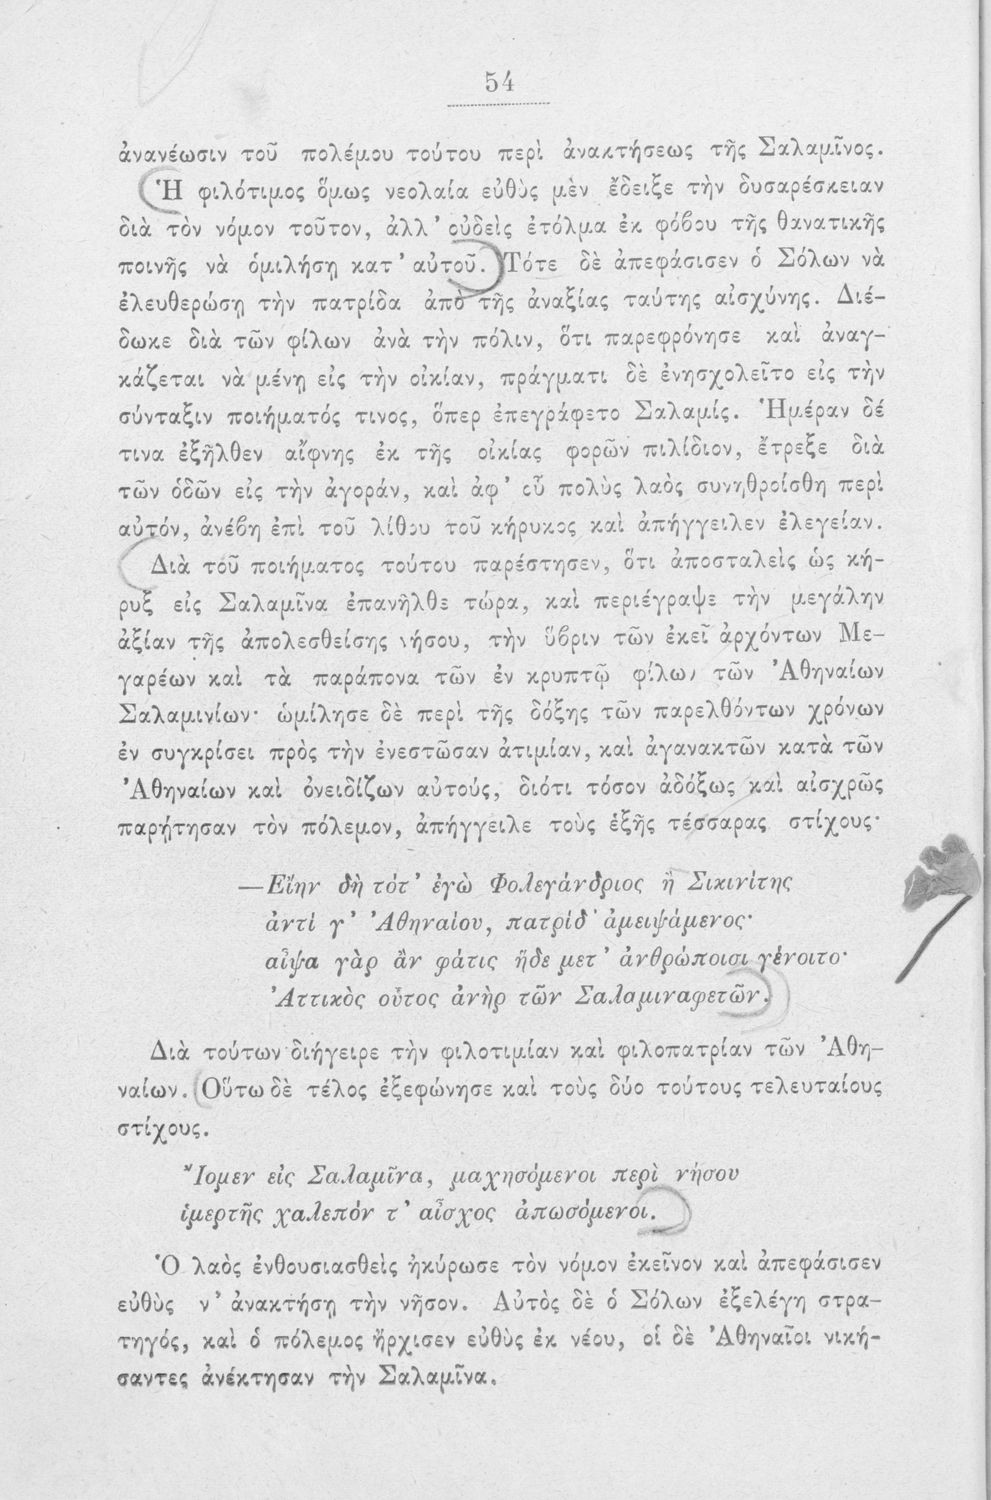 54
ἀνανέωσιν τοῦ πολέμου τούτου περὶ ἀνακτήσεως τῆς Σαλαμῖνος.
Ἡ φιλότιμος ὅμως νεολαία εὐθὺς μὲν ἔδειξε τὴν δυσαρέσκειαν
διὰ τὸν νόμον τοῦτον, ἀλλ’ οὐδεὶς ἐτόλμα ἐκ φόβου τῆς θανατικῆς
ποινῆς νὰ ὁμιλήσῃ κατ’ αὐτοῦ. Τότε δὲ ἀπεφάσισεν ὁ Σόλων νὰ
ἐλευθερώσῃ τὴν πατρίδα ἀπὸ τῆς ἀναξίας ταύτης αἰσχύνης. Διέ-
δωκε διὰ τῶν φίλων ἀνὰ τὴν πόλιν, ὅτι παρεφρόνησε καὶ ἀναγ-
κάζεται νὰ μένῃ εἰς τὴν οἰκίαν, πράγματι δὲ ἐνησχολεῖτο εἰς τὴν
σύνταξιν ποιήματός τινος, ὅπερ ἐπεγράφετο Σαλαμίς. Ἡμέραν δέ
τινα ἐξῆλθεν αἴφνης ἐκ τῆς οἰκίας φορῶν πιλίδιον, ἔτρεξε διὰ
τῶν ὁδῶν εἰς τὴν ἀγοράν, καὶ ἀφ’ οὗ πολὺς λαὸς συνηθροίσθη περὶ
αὐτόν, ἀνέβη ἐπὶ τοῦ λίθου τοῦ κήρυκος καὶ ἀπήγγειλεν ἐλεγείαν.
Διὰ τοῦ ποιήματος τούτου παρέστησεν, ὅτι ἀποσταλεὶς ὡς κή-
ρυξ εἰς Σαλαμῖνα ἐπανῆλθε τώρα, καὶ περιέγραψε τὴν μεγάλην
ἀξίαν τῆς ἀπολεσθείσης νήσου, τὴν ὕβριν τῶν ἐκεῖ ἀρχόντων Με-
γαρέων καὶ τὰ παράπονα τῶν ἐν κρυπτῷ φίλων τῶν Ἀθηναίων
Σαλαμινίων· ὡμίλησε δὲ περὶ τῆς δόξης τῶν παρελθόντων χρόνων
ἐν συγκρίσει πρὸς τὴν ἐνεστῶσαν ἀτιμίαν, καὶ ἀγανακτῶν κατὰ τῶν
Ἀθηναίων καὶ ὀνειδίζων αὐτούς, διότι τόσον ἀδόξως καὶ αἰσχρῶς
παρῄτησαν τὸν πόλεμον, ἀπήγγειλε τοὺς ἑξῆς τέσσαρας στίχους·
—Εἴην δὴ τότ’ ἐγὼ Φολεγάνδριος ἢ Σικινίτης
ἀντί γ’ Ἀθηναίου, πατρίδ’ ἀμειψάμενος·
αἶψα γὰρ ἂν φάτις ἥδε μετ’ ἀνθρώποισι γένοιτο·
Ἀττικὸς οὗτος ἀνὴρ τῶν Σαλαμιναφετῶν.
Διὰ τούτων διήγειρε τὴν φιλοτιμίαν καὶ φιλοπατρίαν τῶν Ἀθη-
ναίων. Οὕτω δὲ τέλος ἐξεφώνησε καὶ τοὺς δύο τούτους τελευταίους
στίχους.
Ἴομεν εἰς Σαλαμῖνα, μαχησόμενοι περὶ νήσου
ἱμερτῆς χαλεπόν τ’ αἶσχος ἀπωσόμενοι.
Ὁ λαὸς ἐνθουσιασθεὶς ἠκύρωσε τὸν νόμον ἐκεῖνον καὶ ἀπεφάσισεν
εὐθὺς ν’ ἀνακτήσῃ τὴν νῆσον. Αὐτὸς δὲ ὁ Σόλων ἐξελέγη στρα-
τηγός, καὶ ὁ πόλεμος ἤρχισεν εὐθὺς ἐκ νέου, οἱ δὲ Ἀθηναῖοι νική-
σαντες ἀνέκτησαν τὴν Σαλαμῖνα.